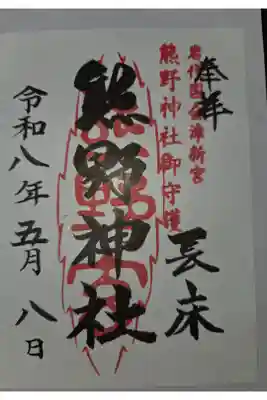 奉拝
岩代國会津新宮
熊野神社御守護
長床
熊野神社
令和八年五月八日